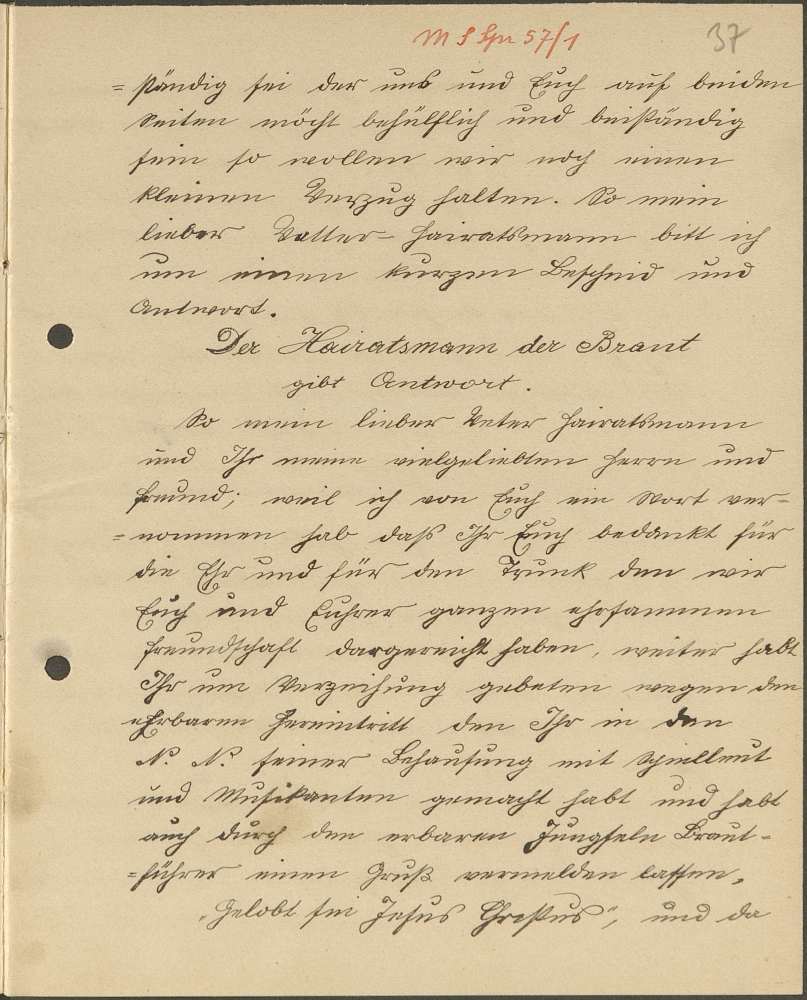 M S Spr 57/1 37
=ständig sei der uns und Euch auf beiden
Seiten möcht behülflich und beiständig
sein so wollen wir noch einen
kleinen Verzug halten. So mein
lieber Vatter Hairatsmann bitt ich
um einen kurzen Bescheid und
Antwort.
Der Hairatsmann der Braut
gibt Antwort.
So mein lieber Veter Hairatsmann
und Ihr meine vielgeliebten Herrn und
Freund; weil ich von Euch ein Wort ver-
=nommen hab daß Ihr Euch bedankt für
die Ehr und für den Trunk den wir
Euch und Euhrer ganzen ehrsammen
Freundschaft dargereicht haben, weiter habt
Ihr um Verzeihung gebeten wegen den
ehrbaren Hereintritt den Ihr in den
N. N. seiner Behausung mit Spielleut
und Musikanten gemacht habt und habt
auch durch den erbaren Jungseln Braut-
=führer einen Gruß vermelden lassen,
„Gelobt sei Jesus Christus", und da